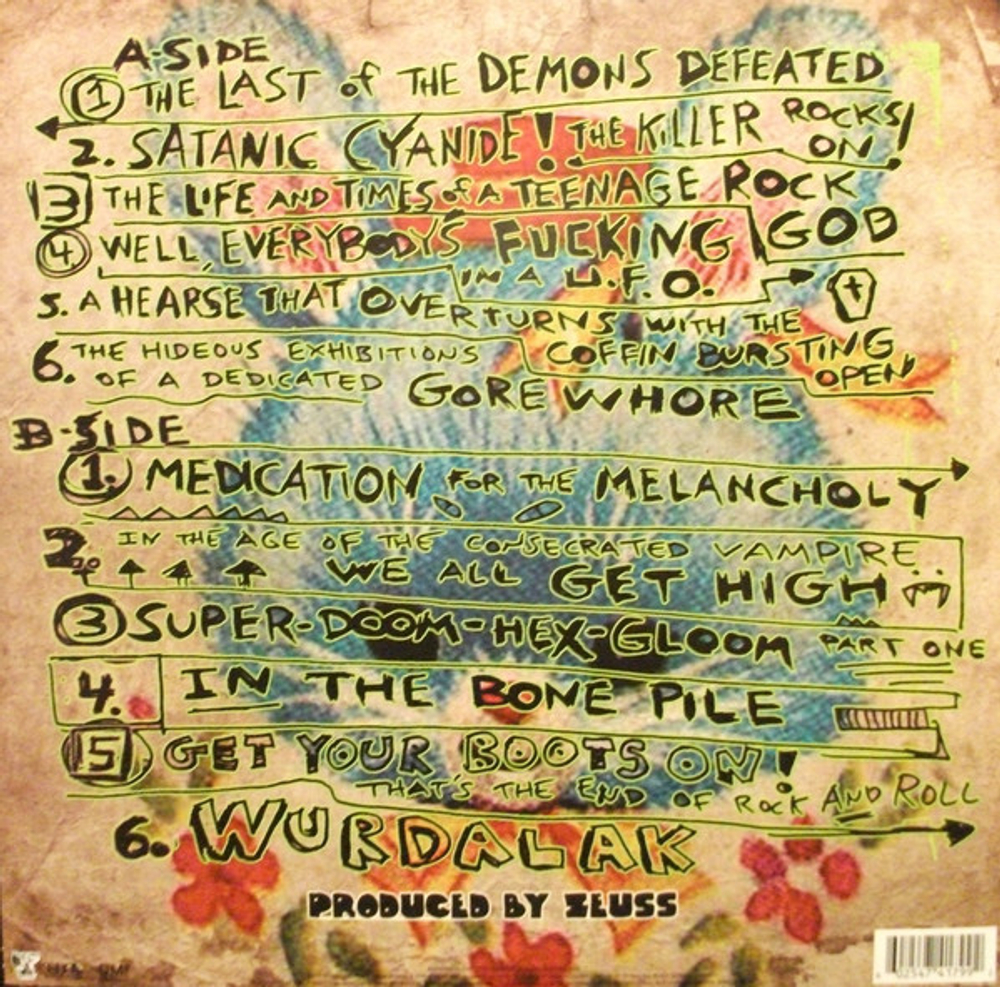 A-SIDE
1 THE LAST of THE DEMONS DEFEATED
2. SATANIC CYANIDE! THE KILLER ROCKS
ON!
3 THE LIFE AND TIMES of A TEENAGE ROCK
GOD
4 WELL, EVERYBODY'S FUCKING
IN A U.F.O.
5. A HEARSE THAT OVERTURNS WITH THE
COFFIN BURSTING
OPEN
6. THE HIDEOUS EXHIBITIONS
OF A DEDICATED GORE WHORE
B-SIDE
1. MEDICATION FOR THE MELANCHOLY
2. IN THE AGE OF THE CONSECRATED VAMPIRE
WE ALL GET HIGH
3 SUPER-DOOM-HEX-GLOOM PART ONE
4. IN THE BONE PILE
5 GET YOUR BOOTS ON!
THAT'S THE END OF ROCK AND ROLL
6. WURDALAK
PRODUCED BY ZEUSS